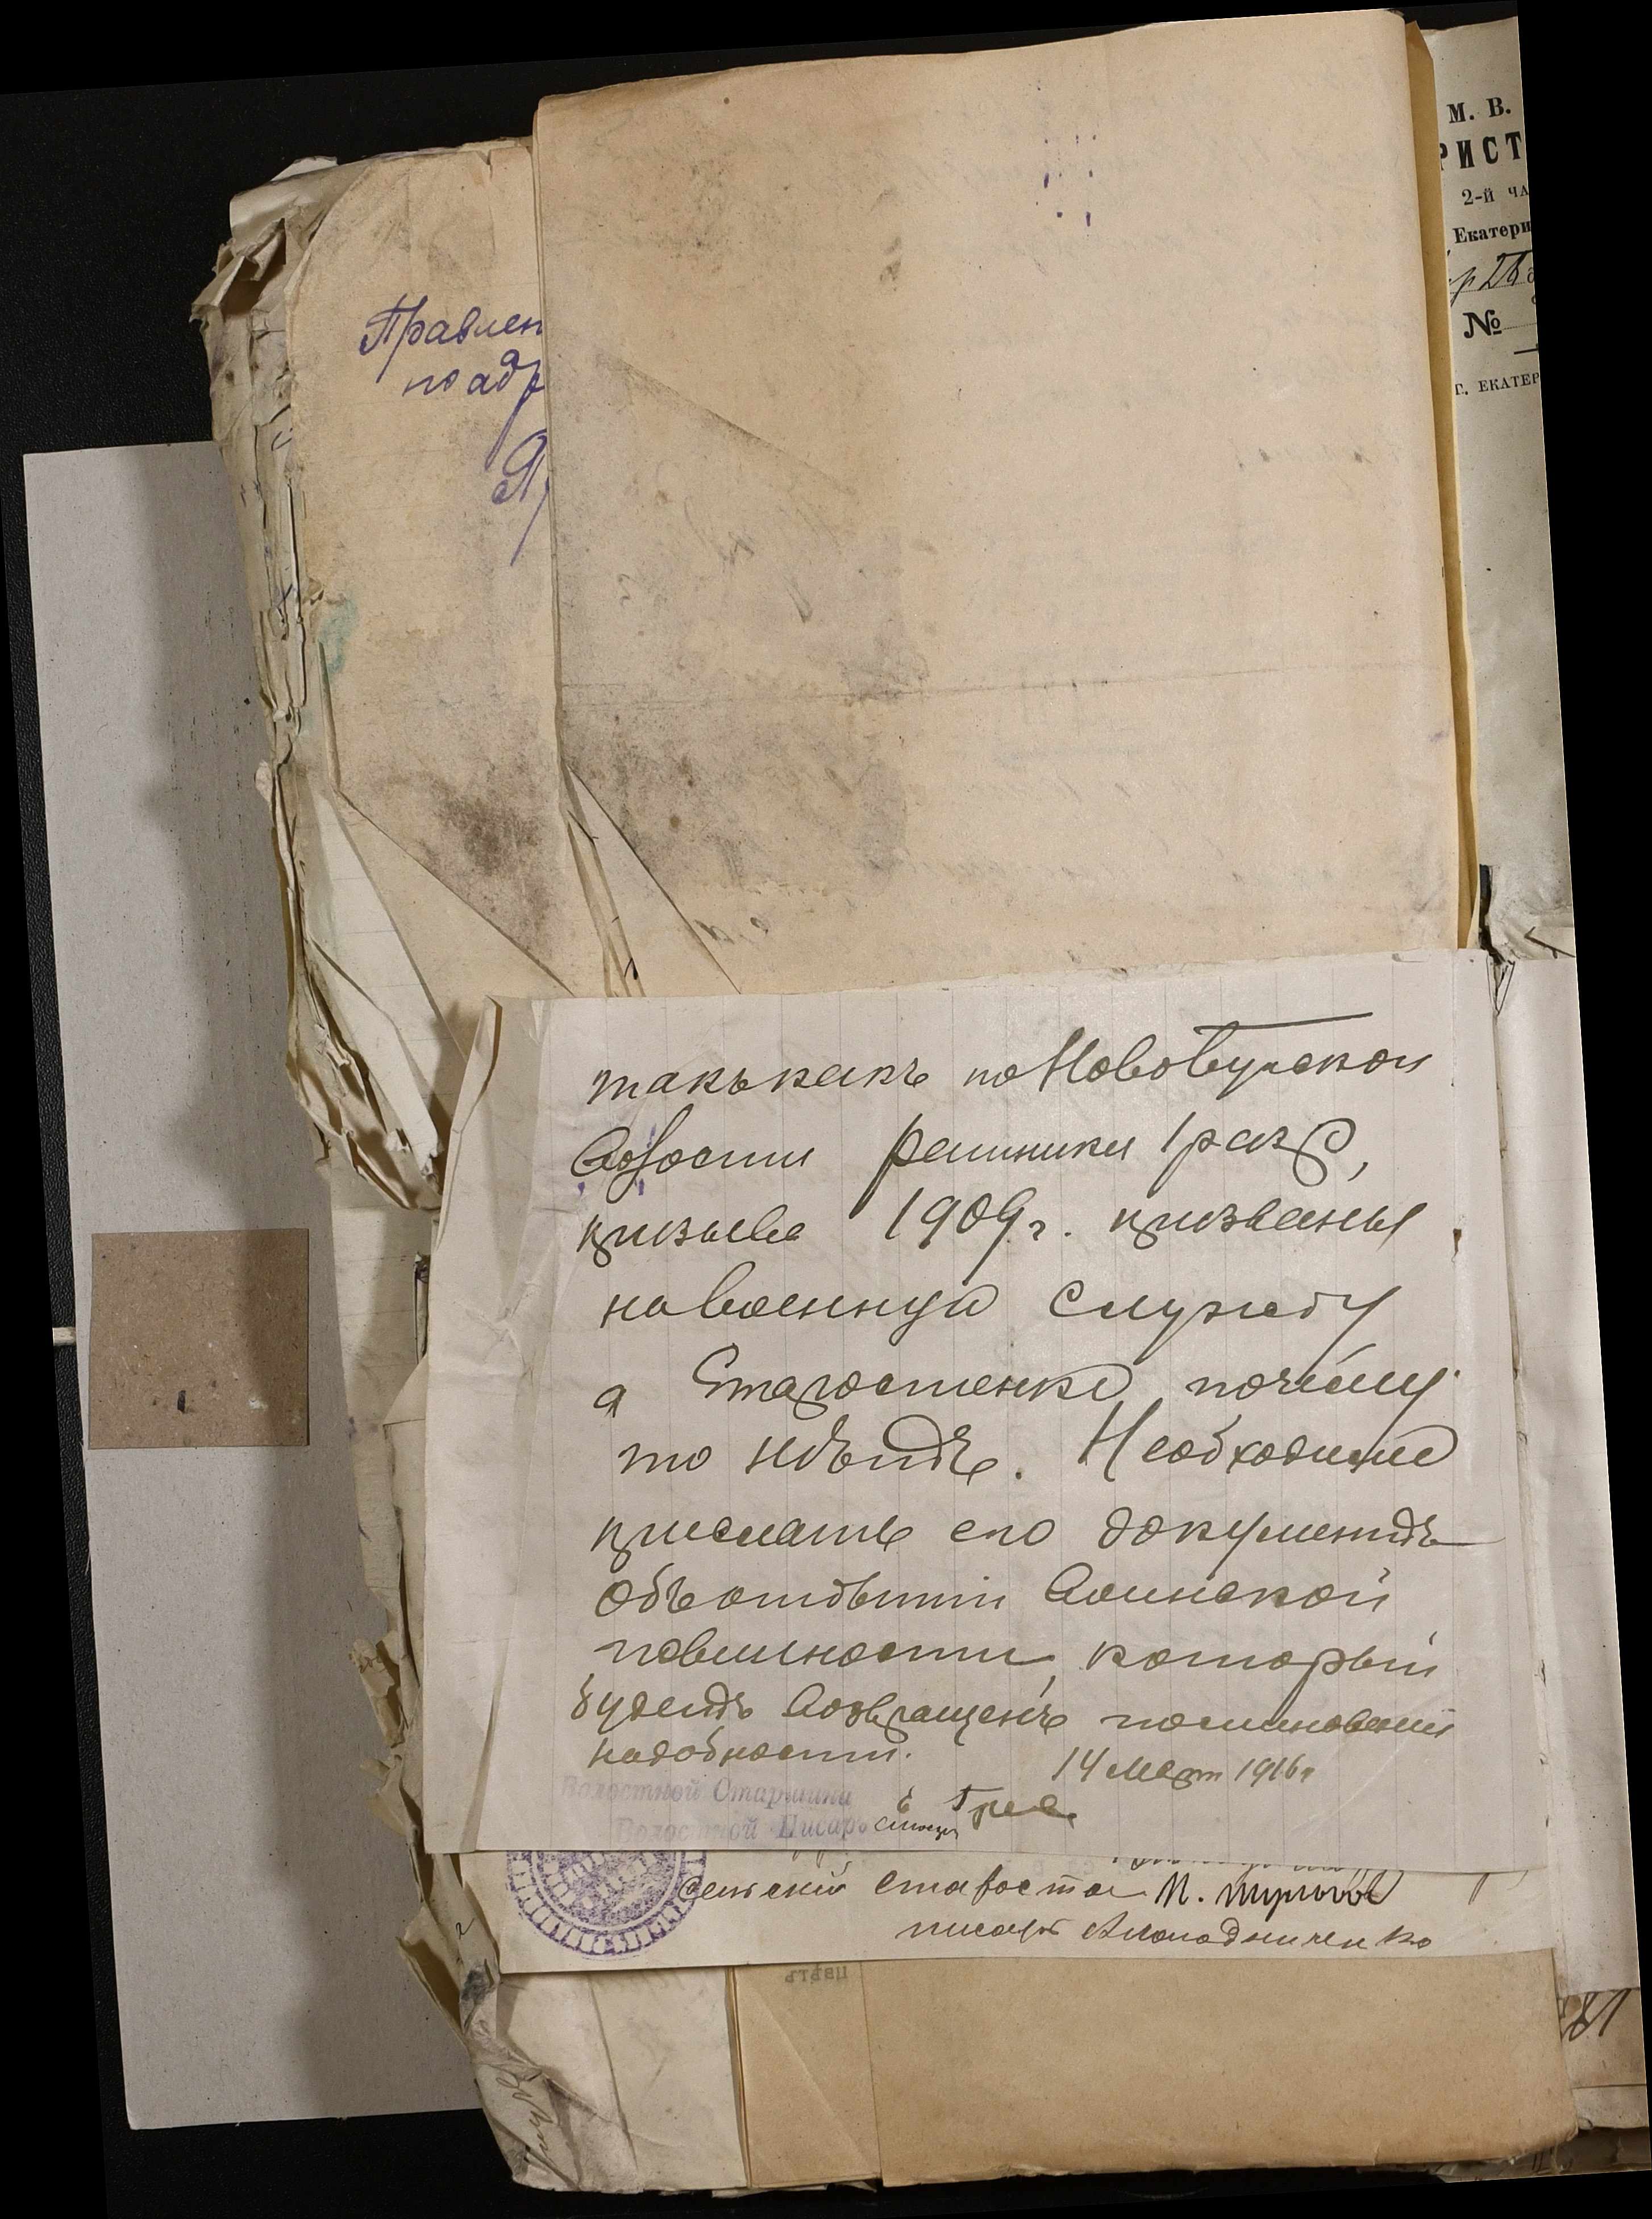 Правлен
по адр
М. В.
РИСТ
2-й ЧА
Екатери
№
Г. ЕКАТЕР
такъ какъ по Новобугской
Волости ратники 1 разр,
призыва 1909 г. призваны
на военную службу
а Старостенко почему
то нѣтъ. Необходимо
прислать его документъ
объ отбытіи Воинской
повинности, который
будетъ возвращенъ по миновеніи
надобности.
14 Март 1916 г
Волостной Старшина
Волостной Писарь
сельскій староста П.
писарь
цвѣтъ